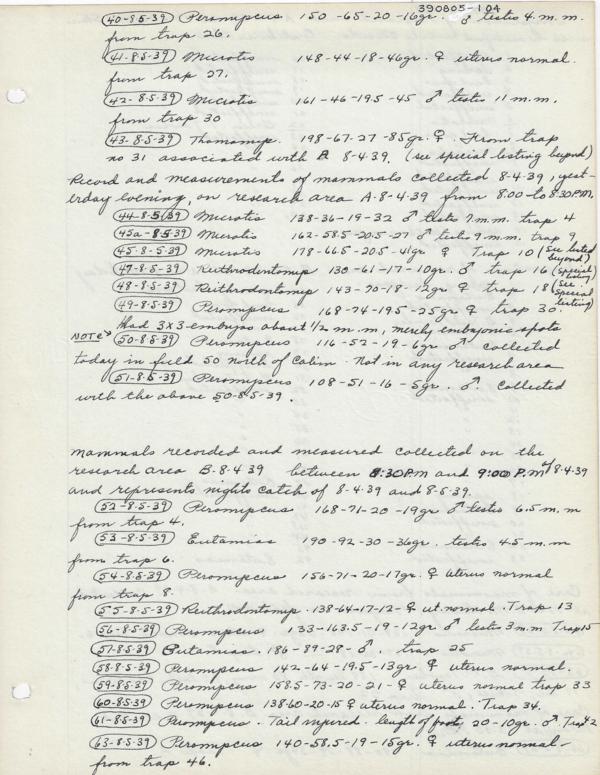 390805-104
40-8-5-39 Peromyscus 150-65-20-16gr. ♂ testis 4.m.m.
from trap 26.
41-8-5-39 Microtis 148-44-18-46gr. ♀ uterus normal
from trap 27.
42-8-5-39 Microtis 161-46-19.5-45 ♂ testis 11 m.m.
from trap 30
43-8-5-39 Thomomys. 198-67-27-85gr. ♀. From trap
no 31 associated with A 8-4-39. (see special listing beyond)
Record and measurements of mammals collected 8-4-39, yest-
erday evening, on research area A-8-4-39 from 8:00 to 8:30 P.M.
44-8-5-39 Microtis 138-36-19-32 ♂ testis 7.m.m. trap 4
45a-8-5-39 Microtis 162-58.5-20.5-27 ♂ testis 9.m.m. trap 9
45-8-5-39 Microtis 178-66.5-20.5-41gr ♀ Trap 10 (see listed beyond)
47-8-5-39 Reithrodontomys 130-61-17-10gr. ♂ trap 16 (special listing)
48-8-5-39 Reithrodontomys 143-70-18-12gr ♀ trap 18 (see special listing)
49-8-5-39 Peromyscus 168-74-19.5-25gr ♀ trap 30.
Had 3x3 embryos about 1/2 m.m, merely embryonic spots
NOTE> 50-8-5-39 Peromyscus 116-52-19-6gr ♂ collected
today in field 50 north of Cabin. Not in any research area
51-8-5-39 Peromyscus 108-51-16-5gr. ♂. Collected
with the above 50-8-5-39.
Mammals recorded and measured collected on the
research area B-8-4-39 between 8:30 P.M and 9:00 P.M of 8-4-39
and represents nights catch of 8-4-39 and 8-5-39.
52-8-5-39 Peromyscus 168-71-20-19gr ♂ testis 6.5 m.m
from trap 4.
53-8-5-39 Eutamias 190-92-30-36gr. testis 4.5 m.m
from trap 6.
54-8-5-39 Peromyscus 156-71-20-17gr. ♀ uterus normal
from trap 8.
55-8-5-39 Reithrodontomys. 138-64-17-12-♀ ut. normal. Trap 13
56-8-5-39 Peromyscus 133-163.5-19-12gr ♂ testis 3m.m Trap 15
57-8-5-39 Eutamias. 186-89-28-♂. trap 25
58-8-5-39 Peromyscus 142-64-19.5-13gr ♀ uterus normal.
59-8-5-39 Peromyscus 158.5-73-20-21-♀ uterus normal trap 33
60-8-5-39 Peromyscus 138-60-20-15 ♀ uterus normal. Trap 34.
61-8-5-39 Peromyscus. Tail injured. length of foot 20-10gr. ♂ Trap 42
63-8-5-39 Peromyscus 140-58.5-19-15gr. ♀ uterus normal-
from trap 46.